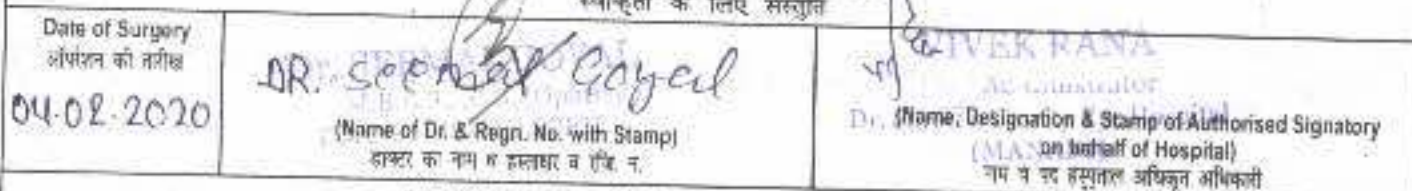 स्वीकृती के लिए संस्तुति
Date of Surgery
ऑपरेशन की तारीख
04.02.2020
DR. Seema Goyal
(Name of Dr. & Regn. No. with Stamp)
डाक्टर का नाम व हस्ताक्षर व रजि. न.
VIVEK RANA
Administrator
Dr.
(Name, Designation & Stamp of Authorised Signatory
on behalf of Hospital)
नाम व पद हस्पताल अधिकृत अधिकारी